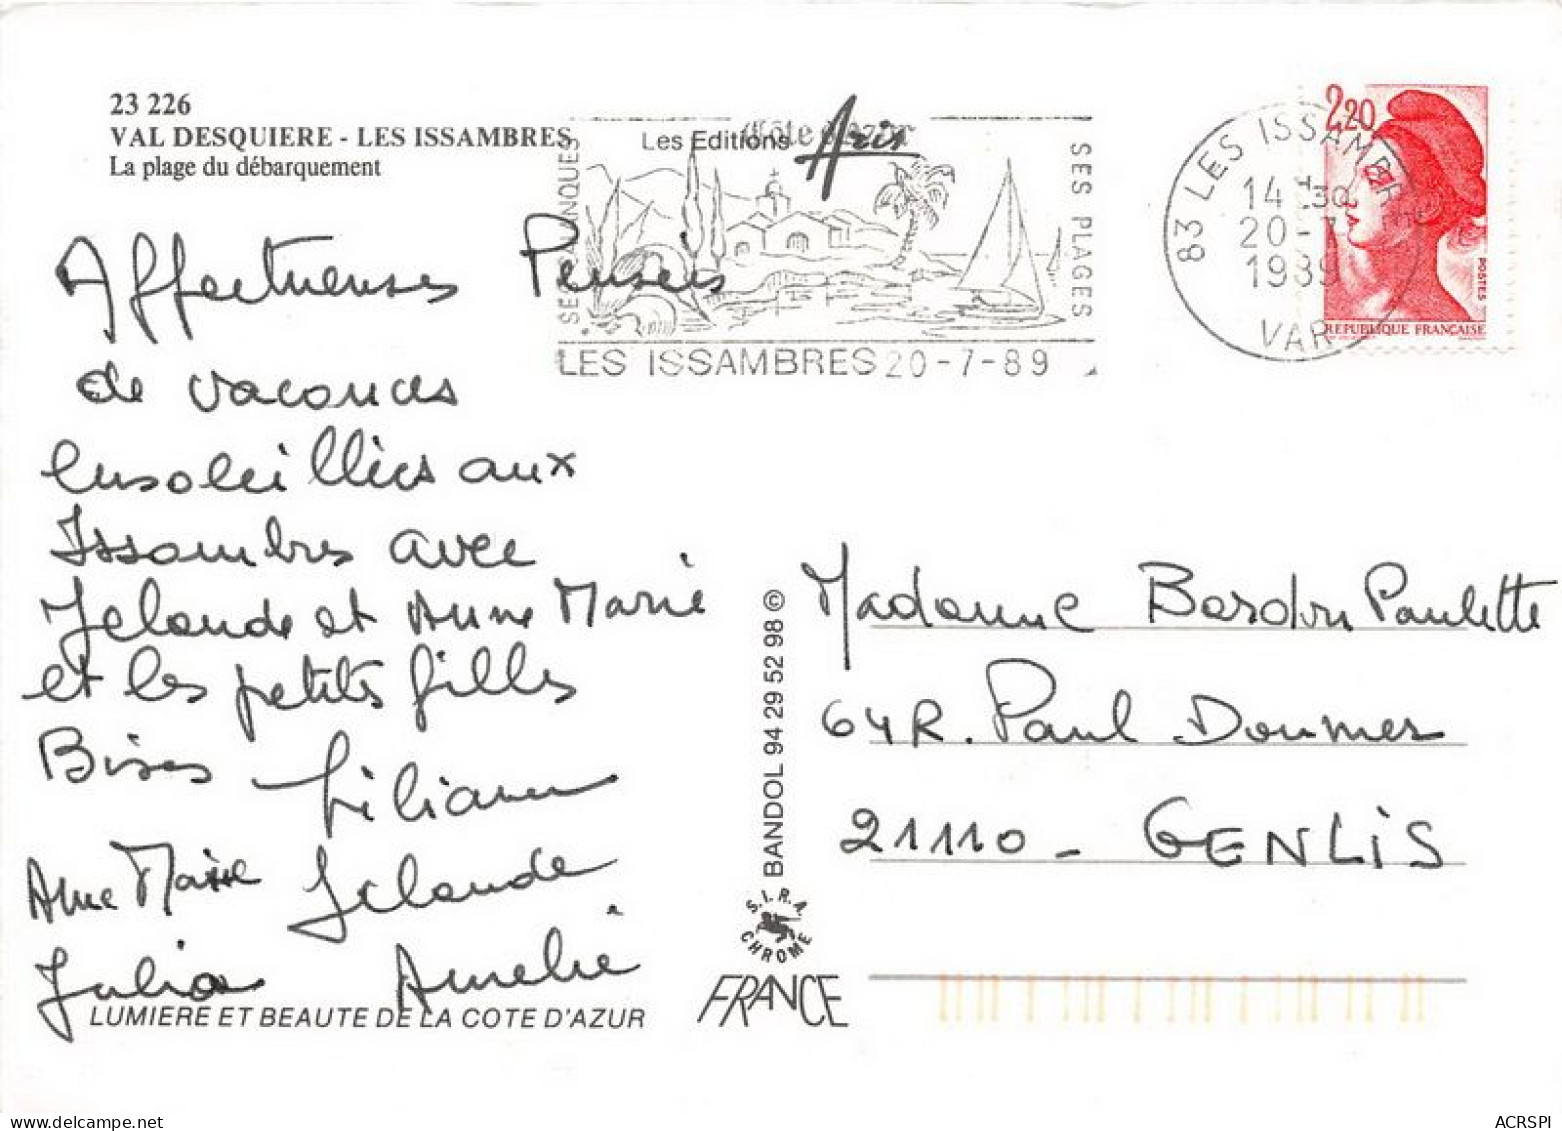 23 226
VAL DESQUIERE - LES ISSAMBRES
La plage du débarquement
Les Editions Aris
Côte d'Azur
SES PLAGES
LES ISSAMBRES 20-7-89
83 LES ISSAMBRES
14H30
20-7
1989
VAR
2,20
POSTES
REPUBLIQUE FRANÇAISE
Affectueuses Pensées
de vacances
ensoleillées aux
Issambres avec
Yolande et Anne Marie
et les petites filles
Bises Liliane
Anne Marie Yolande
Julia Amélie
Madame Bardon Paulette
64 R. Paul Doumer
21110 - GENLIS
BANDOL 94 29 52 98 ©
S.I.R.A.
CHROME
FRANCE
LUMIERE ET BEAUTE DE LA COTE D'AZUR
ACRSPI